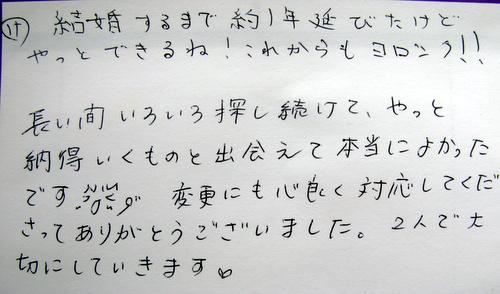 け 結婚するまで約1年延びたけど
やっとできるね!これからもヨロシク!!
長い間いろいろ探し続けて、やっと
納得いくものと出会えて本当によかった
です 変更にも心良く対応してくだ
さってありがとうございました。2人で大
切にしていきます♡